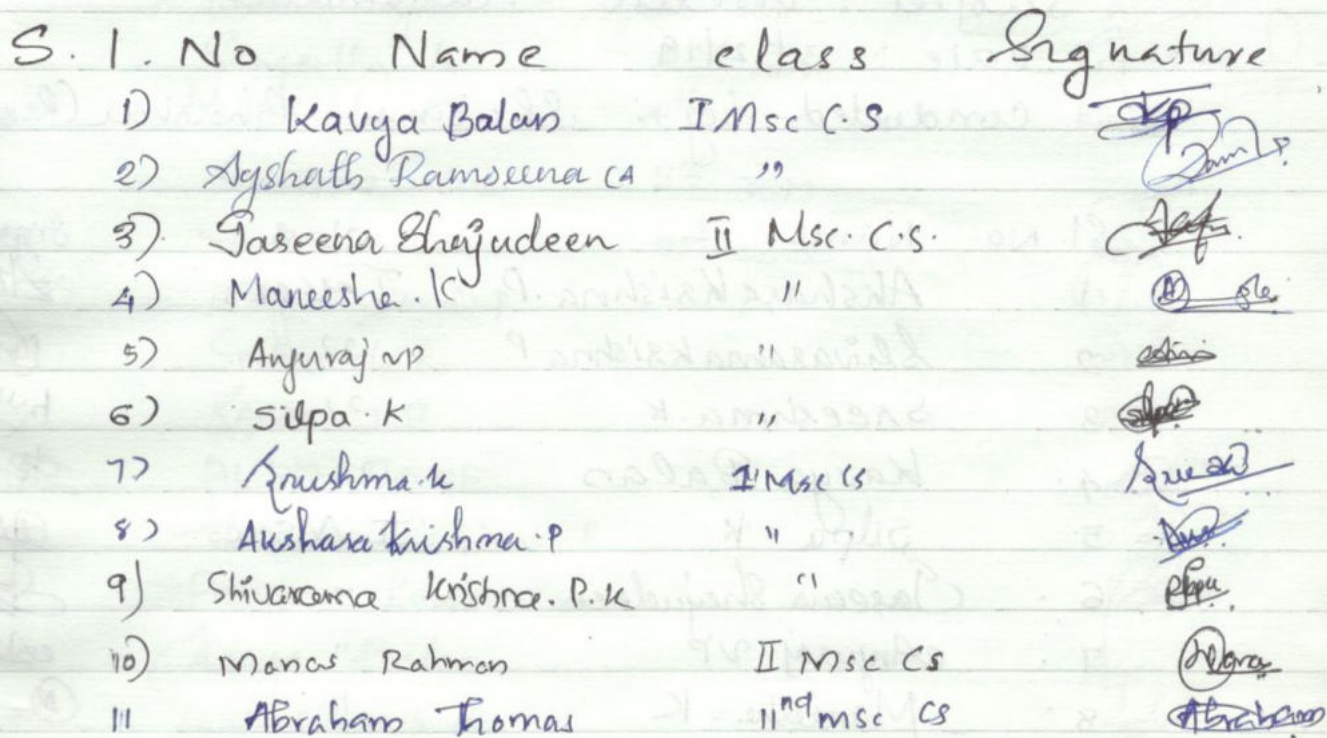 S. l. No Name class Signature
1) Kavya Balan I Msc CS
2) Ayshath Ramseena CA "
3) Jaseena Shajudeen II Msc. C.S.
4) Maneesha. K "
5) Anjuraj VP "
6) Silpa. K "
7) Anushma. K I Msc CS
8) Akshara Krishna. P "
9) Shivarama Krishna. P. K "
10) Manas Rahman II Msc Cs
11 Abraham Thomas IInd msc CS Abraham